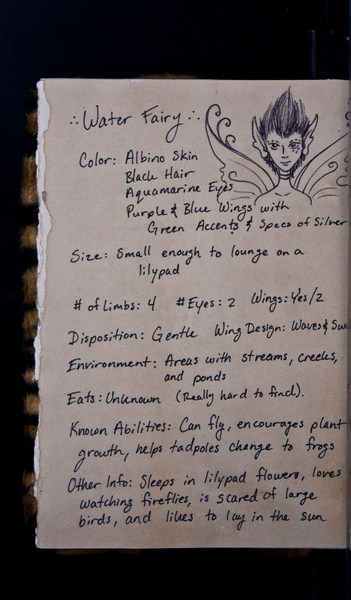 ∴ Water Fairy ∴
Color: Albino Skin
Black Hair
Aquamarine Eyes
Purple & Blue Wings with
Green Accents & Specs of Silver
Size: Small enough to lounge on a
lilypad
# of Limbs: 4 # Eyes: 2 Wings: Yes/2
Disposition: Gentle Wing Design: Waves &
Environment: Areas with streams, creeks,
and ponds
Eats: Unknown (Really hard to find).
Known Abilities: Can fly, encourages plant
growth, helps tadpoles change to frogs
Other Info: Sleeps in lilypad flowers, loves
watching fireflies, is scared of large
birds, and likes to lay in the sun